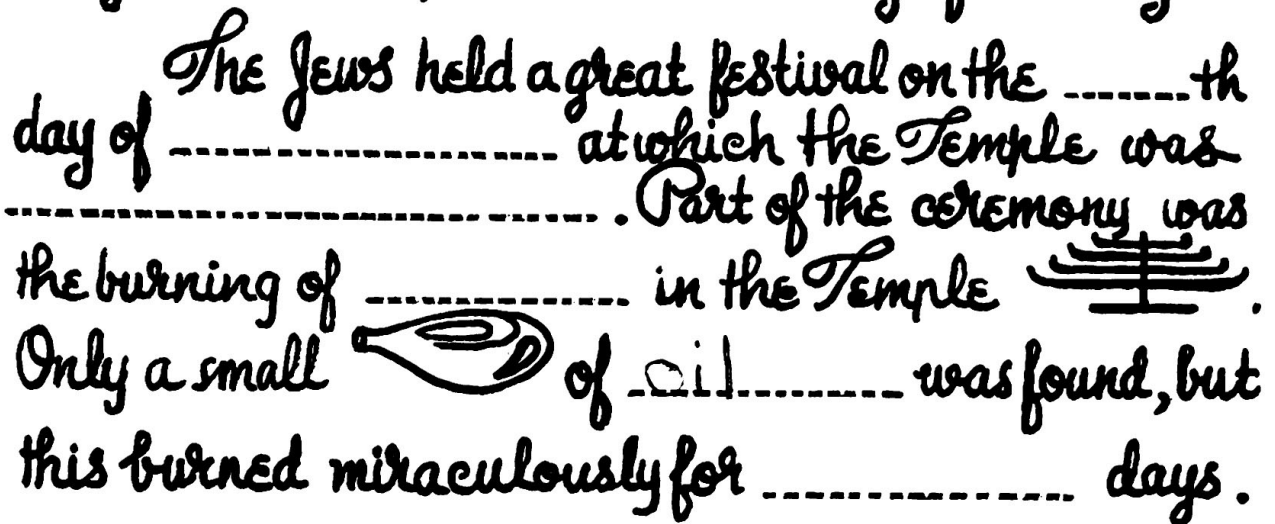 The Jews held a great festival on the _______th
day of ____________________ at which the Temple was
____________________. Part of the ceremony was
the burning of ______________ in the Temple .
Only a small of oil was found, but
this burned miraculously for ________________ days.